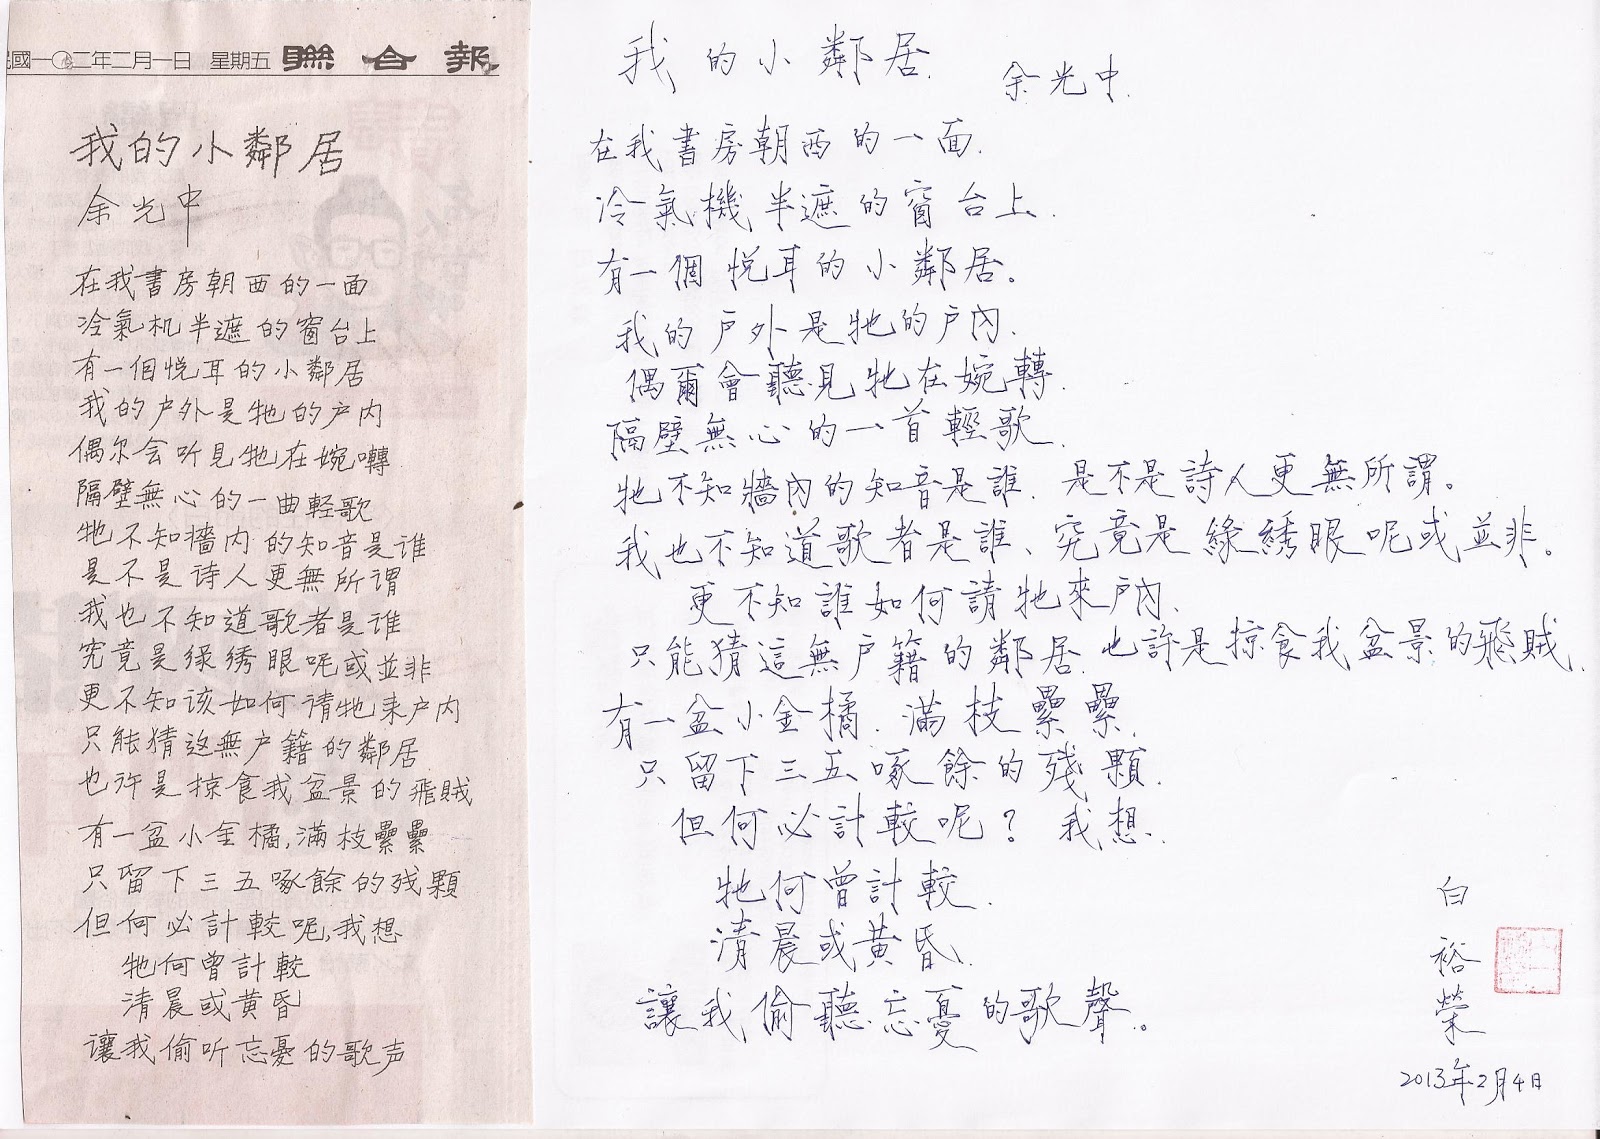 民國一〇二年二月一日 星期五 聯合報
我的小鄰居
余光中
在我書房朝西的一面
冷氣机半遮的窗台上
有一個悅耳的小鄰居
我的户外是牠的户内
偶尔会听見牠在婉囀
隔壁無心的一曲輕歌
牠不知墻内的知音是谁
是不是诗人更無所谓
我也不知道歌者是谁
究竟是綠绣眼呢或並非
更不知该如何请牠来户内
只能猜这無户籍的鄰居
也许是掠食我盆景的飛賊
有一盆小金橘,滿枝纍纍
只留下三五啄餘的残顆
但何必計較呢,我想
牠何曾計較
清晨或黄昏
讓我偷听忘憂的歌声
我的小鄰居.
余光中.
在我書房朝西的一面.
冷氣機半遮的窗台上.
有一個悅耳的小鄰居。
我的户外是牠的户內.
偶爾會聽見牠在婉轉.
隔壁無心的一首輕歌.
牠不知墻內的知音是誰.是不是詩人更無所謂。
我也不知道歌者是誰、究竟是綠綉眼呢或並非。
更不知誰如何請牠來户內.
只能猜這無户籍的鄰居.也許是掠食我盆景的飛賊.
有一盆小金橘.滿枝纍纍.
只留下三五啄餘的殘顆.
但何必計較呢?我想.
牠何曾計較.
清晨或黃昏.
讓我偷聽忘憂的歌聲。
白裕榮
2013年2月4日